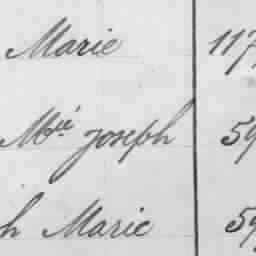 Marie 117
Mie Joseph 59
h Marie 59